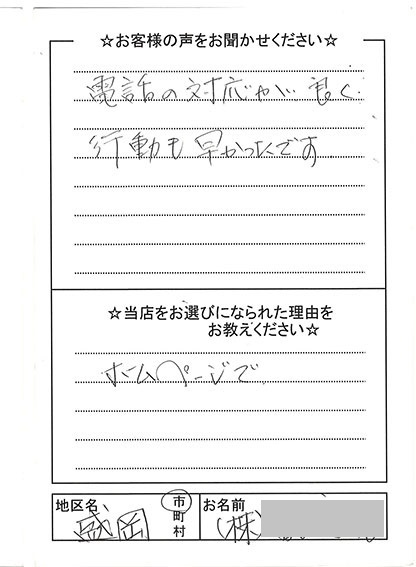 ☆お客様の声をお聞かせください☆
電話の対応が良く
行動も早かったです
☆当店をお選びになられた理由を
お教えください☆
ホームページで
地区名
盛岡
市
町
村
お名前
(株)